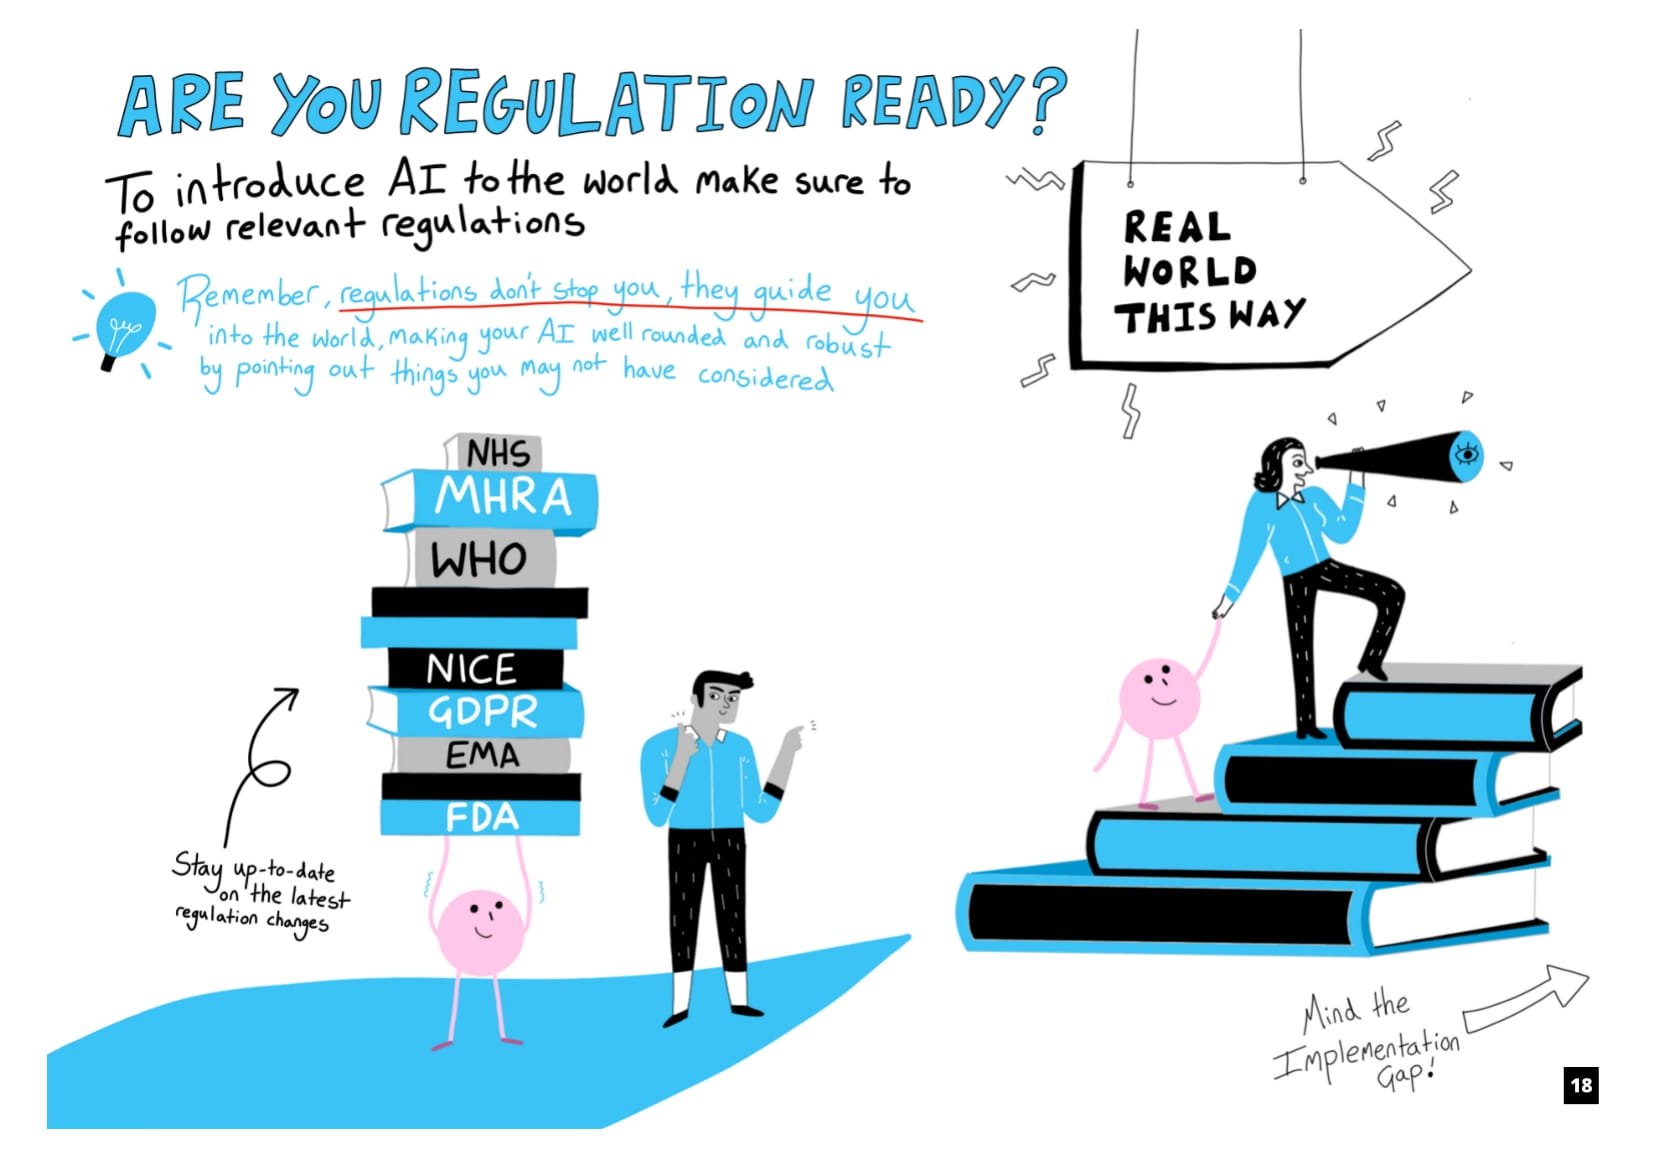 ARE YOU REGULATION READY?
To introduce AI to the world make sure to
follow relevant regulations
Remember, regulations don't stop you, they guide you
into the world, making your AI well rounded and robust
by pointing out things you may not have considered
REAL
WORLD
THIS WAY
NHS
MHRA
WHO
NICE
GDPR
EMA
FDA
Stay up-to-date
on the latest
regulation changes
Mind the
Implementation
Gap!
18